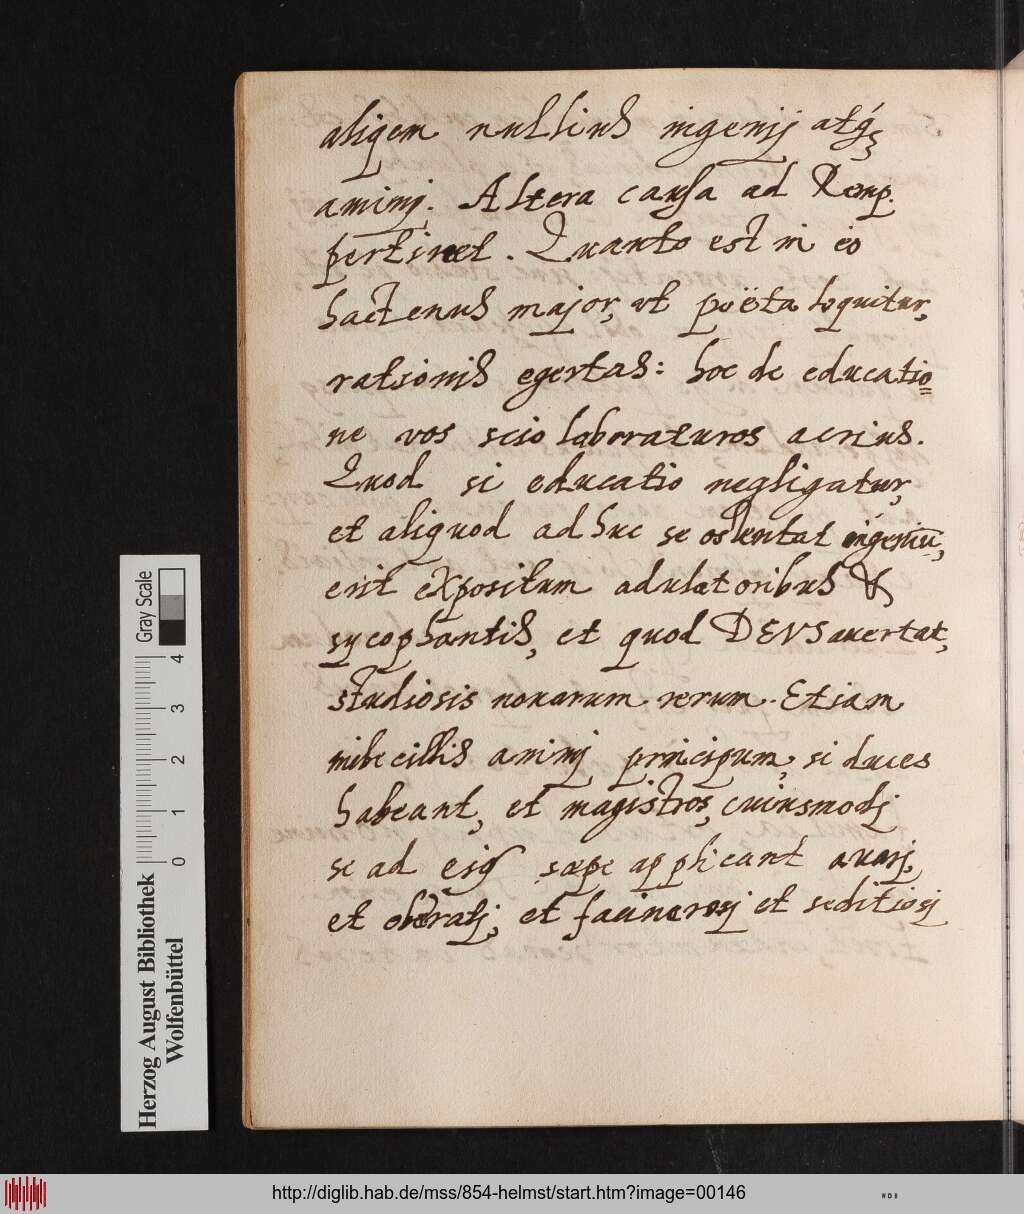 aliqem nullius ingenij atq́ꝫ
animj. Altera causa ad Remp.
pertinet. Quanto est in eo
hactenus major, ut poëta loquitur,
rationis egestas: hoc de educatio=
ne vos scio laboraturos acrius.
Quod si educatio negligatur,
et aliquod adhuc se ostentat ingeniū,
erit expositum adulatoribus &
sycophantis, et quod DEUS auertat,
studiosis nouarum rerum. Etiam
imbecillis animj principum, si duces
habeant, et magistros, cuiusmodj
se ad eiq sæpe applicant auarj,
et obæratj, et facinorosj et seditiosj
Gray Scale
0 1 2 3 4
Herzog August Bibliothek
Wolfenbüttel
http://diglib.hab.de/mss/854-helmst/start.htm?image=00146
WDB